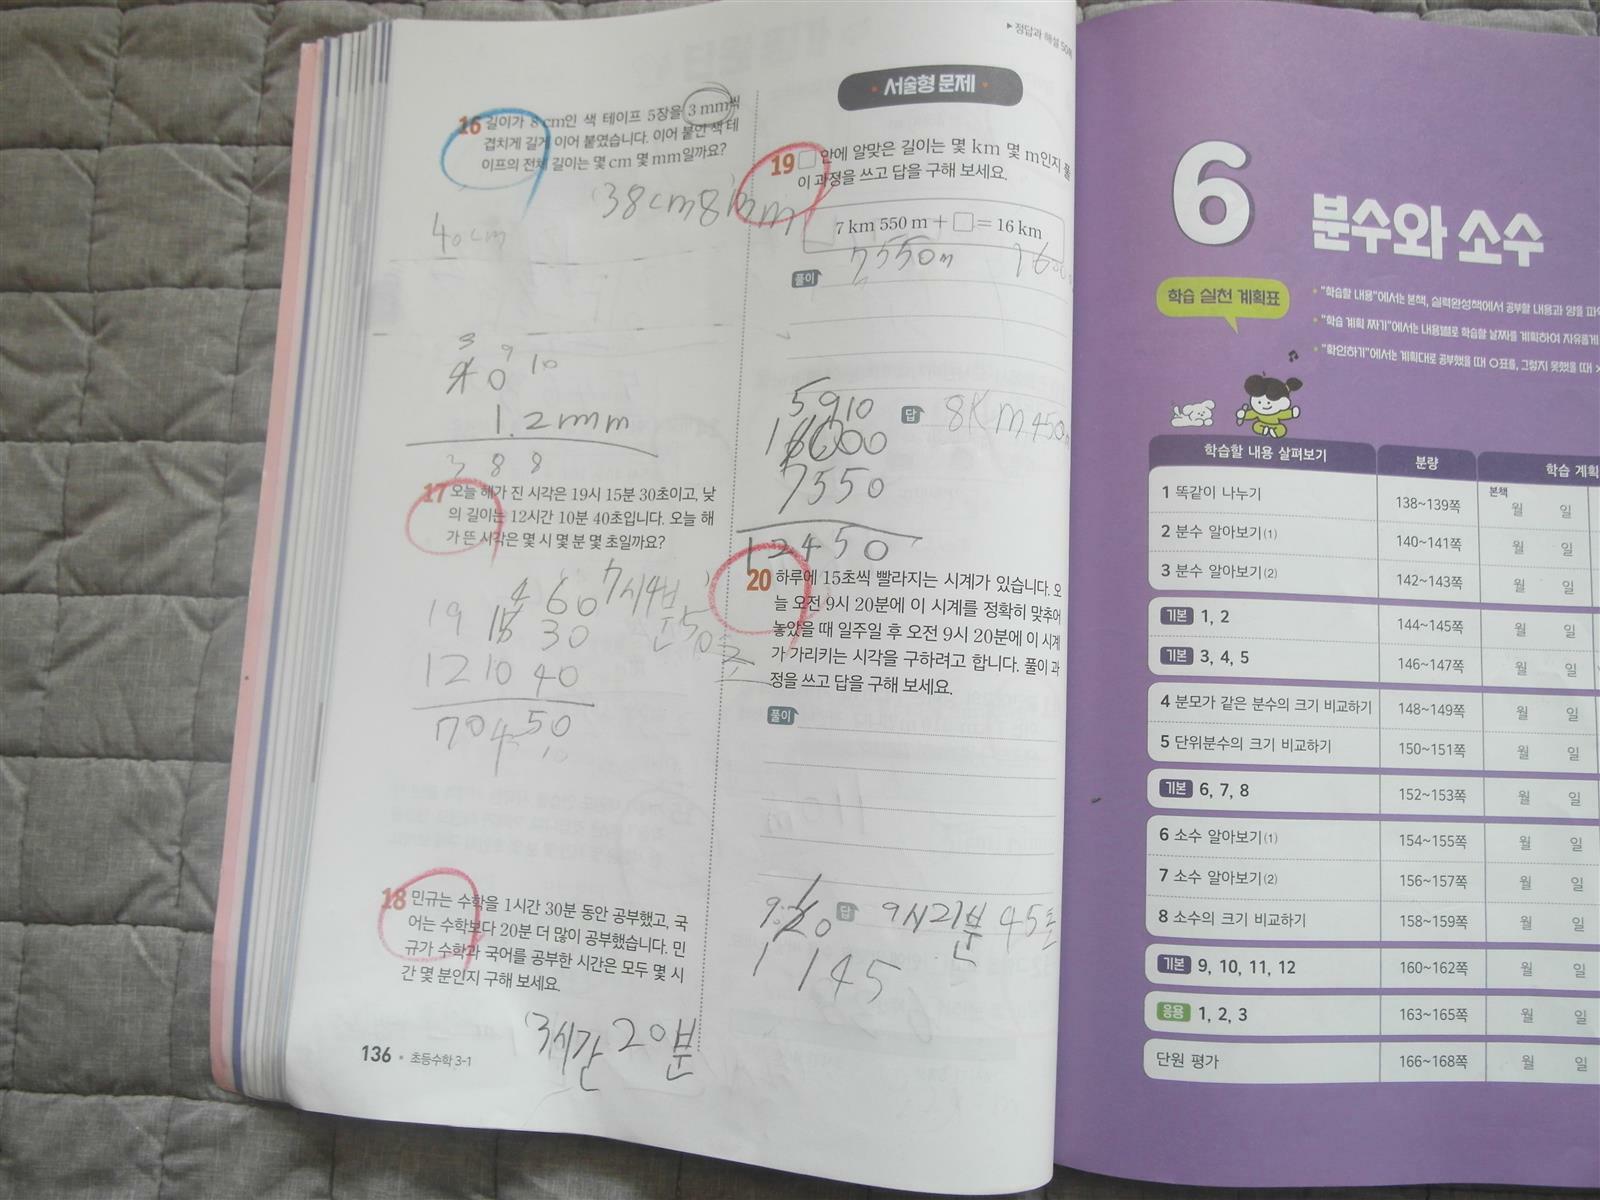 16 길이가 8 cm인 색 테이프 5장을 3 mm씩
겹치게 길게 이어 붙였습니다. 이어 붙인 색 테
이프의 전체 길이는 몇 cm 몇 mm일까요?
38cm8mm
40cm
3 9 10
40
1.2mm
3 8 8
17 오늘 해가 진 시각은 19시 15분 30초이고, 낮
의 길이는 12시간 10분 40초입니다. 오늘 해
가 뜬 시각은 몇 시 몇 분 몇 초일까요?
7시4분
50초
4 60
19 15 30
12 10 40
7 04 50
18 민규는 수학을 1시간 30분 동안 공부했고, 국
어는 수학보다 20분 더 많이 공부했습니다. 민
규가 수학과 국어를 공부한 시간은 모두 몇 시
간 몇 분인지 구해 보세요.
3시간 20분
136 • 초등수학 3-1
▶ 정답과 해설 50쪽
서술형 문제
19 □ 안에 알맞은 길이는 몇 km 몇 m인지 풀
이 과정을 쓰고 답을 구해 보세요.
7 km 550 m + □ = 16 km
7550m
풀이
5 9 10
16000
7550
답 8Km450m
20 하루에 15초씩 빨라지는 시계가 있습니다. 오
늘 오전 9시 20분에 이 시계를 정확히 맞추어
놓았을 때 일주일 후 오전 9시 20분에 이 시계
가 가리키는 시각을 구하려고 합니다. 풀이 과
정을 쓰고 답을 구해 보세요.
풀이
답 9시21분 45초
1 45
6 분수와 소수
학습 실천 계획표
• "학습할 내용"에서는 본책, 실력완성책에서 공부할 내용과 양을
• "학습 계획 짜기"에서는 내용별로 학습할 날짜를 계획하여 자유롭게
• "확인하기"에서는 계획대로 공부했을 때 ○표를, 그렇지 못했을 때 ×
학습할 내용 살펴보기 분량 학습 계획
본책
1 똑같이 나누기 138~139쪽 월 일
2 분수 알아보기(1) 140~141쪽 월 일
3 분수 알아보기(2) 142~143쪽 월 일
기본 1, 2 144~145쪽 월 일
기본 3, 4, 5 146~147쪽 월 일
4 분모가 같은 분수의 크기 비교하기 148~149쪽 월 일
5 단위분수의 크기 비교하기 150~151쪽 월 일
기본 6, 7, 8 152~153쪽 월 일
6 소수 알아보기(1) 154~155쪽 월 일
7 소수 알아보기(2) 156~157쪽 월 일
8 소수의 크기 비교하기 158~159쪽 월 일
기본 9, 10, 11, 12 160~162쪽 월 일
응용 1, 2, 3 163~165쪽 월 일
단원 평가 166~168쪽 월 일